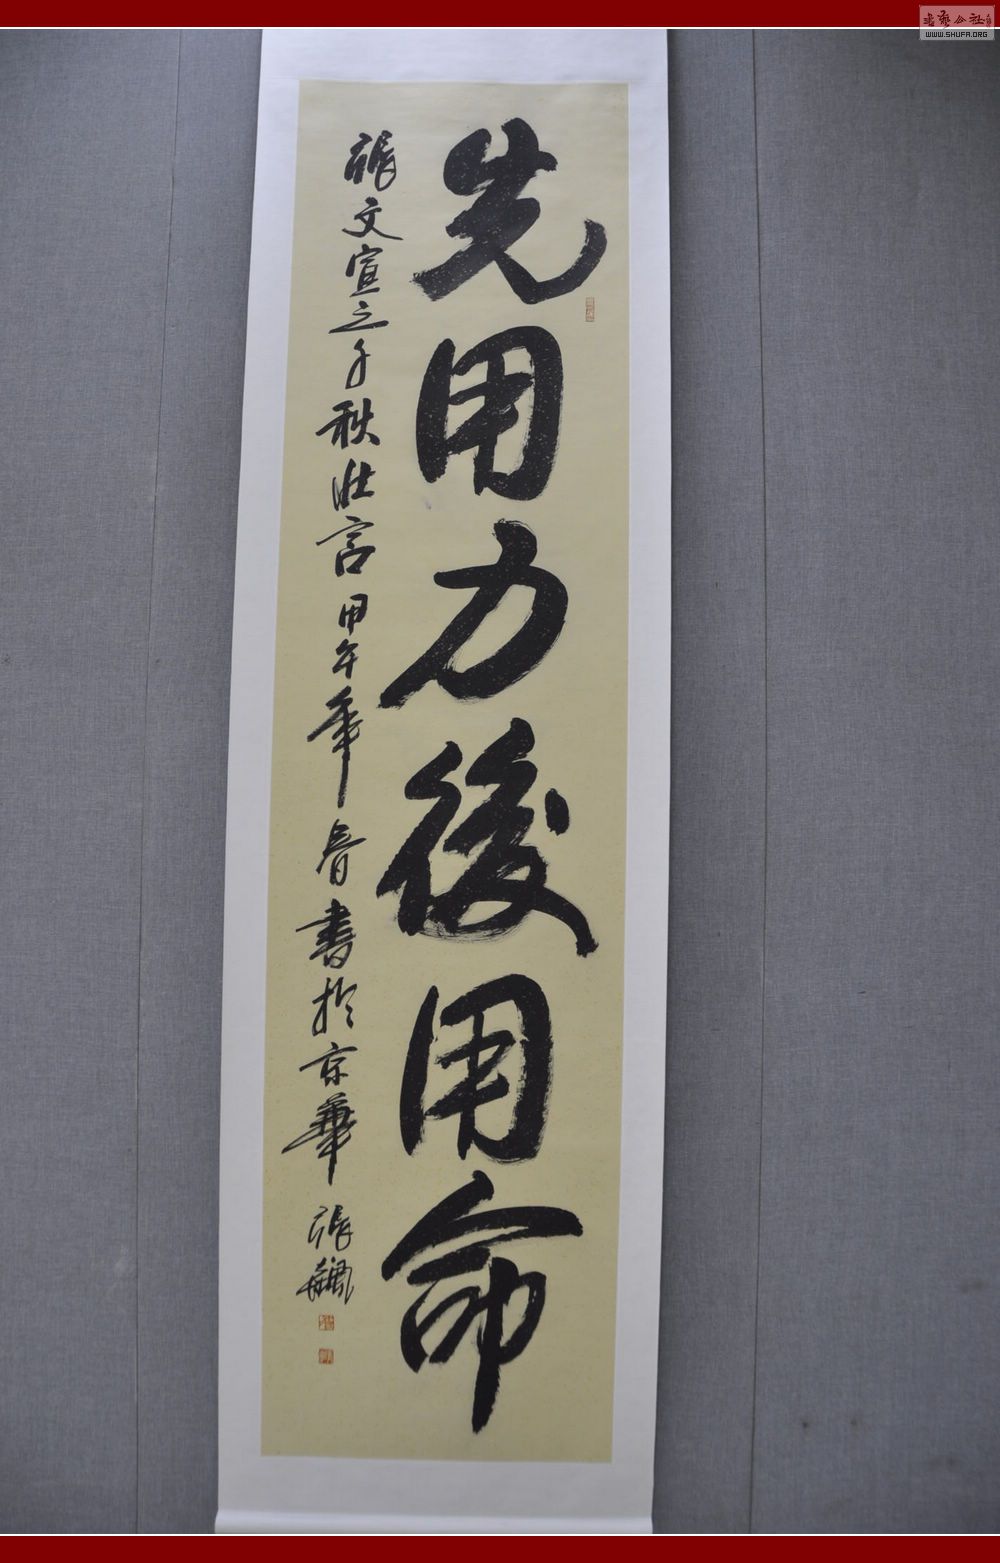 先用力後用命
張文宣之千秋壯言甲午年春書於京華張飆
書藝公社
WWW.SHUFA.ORG